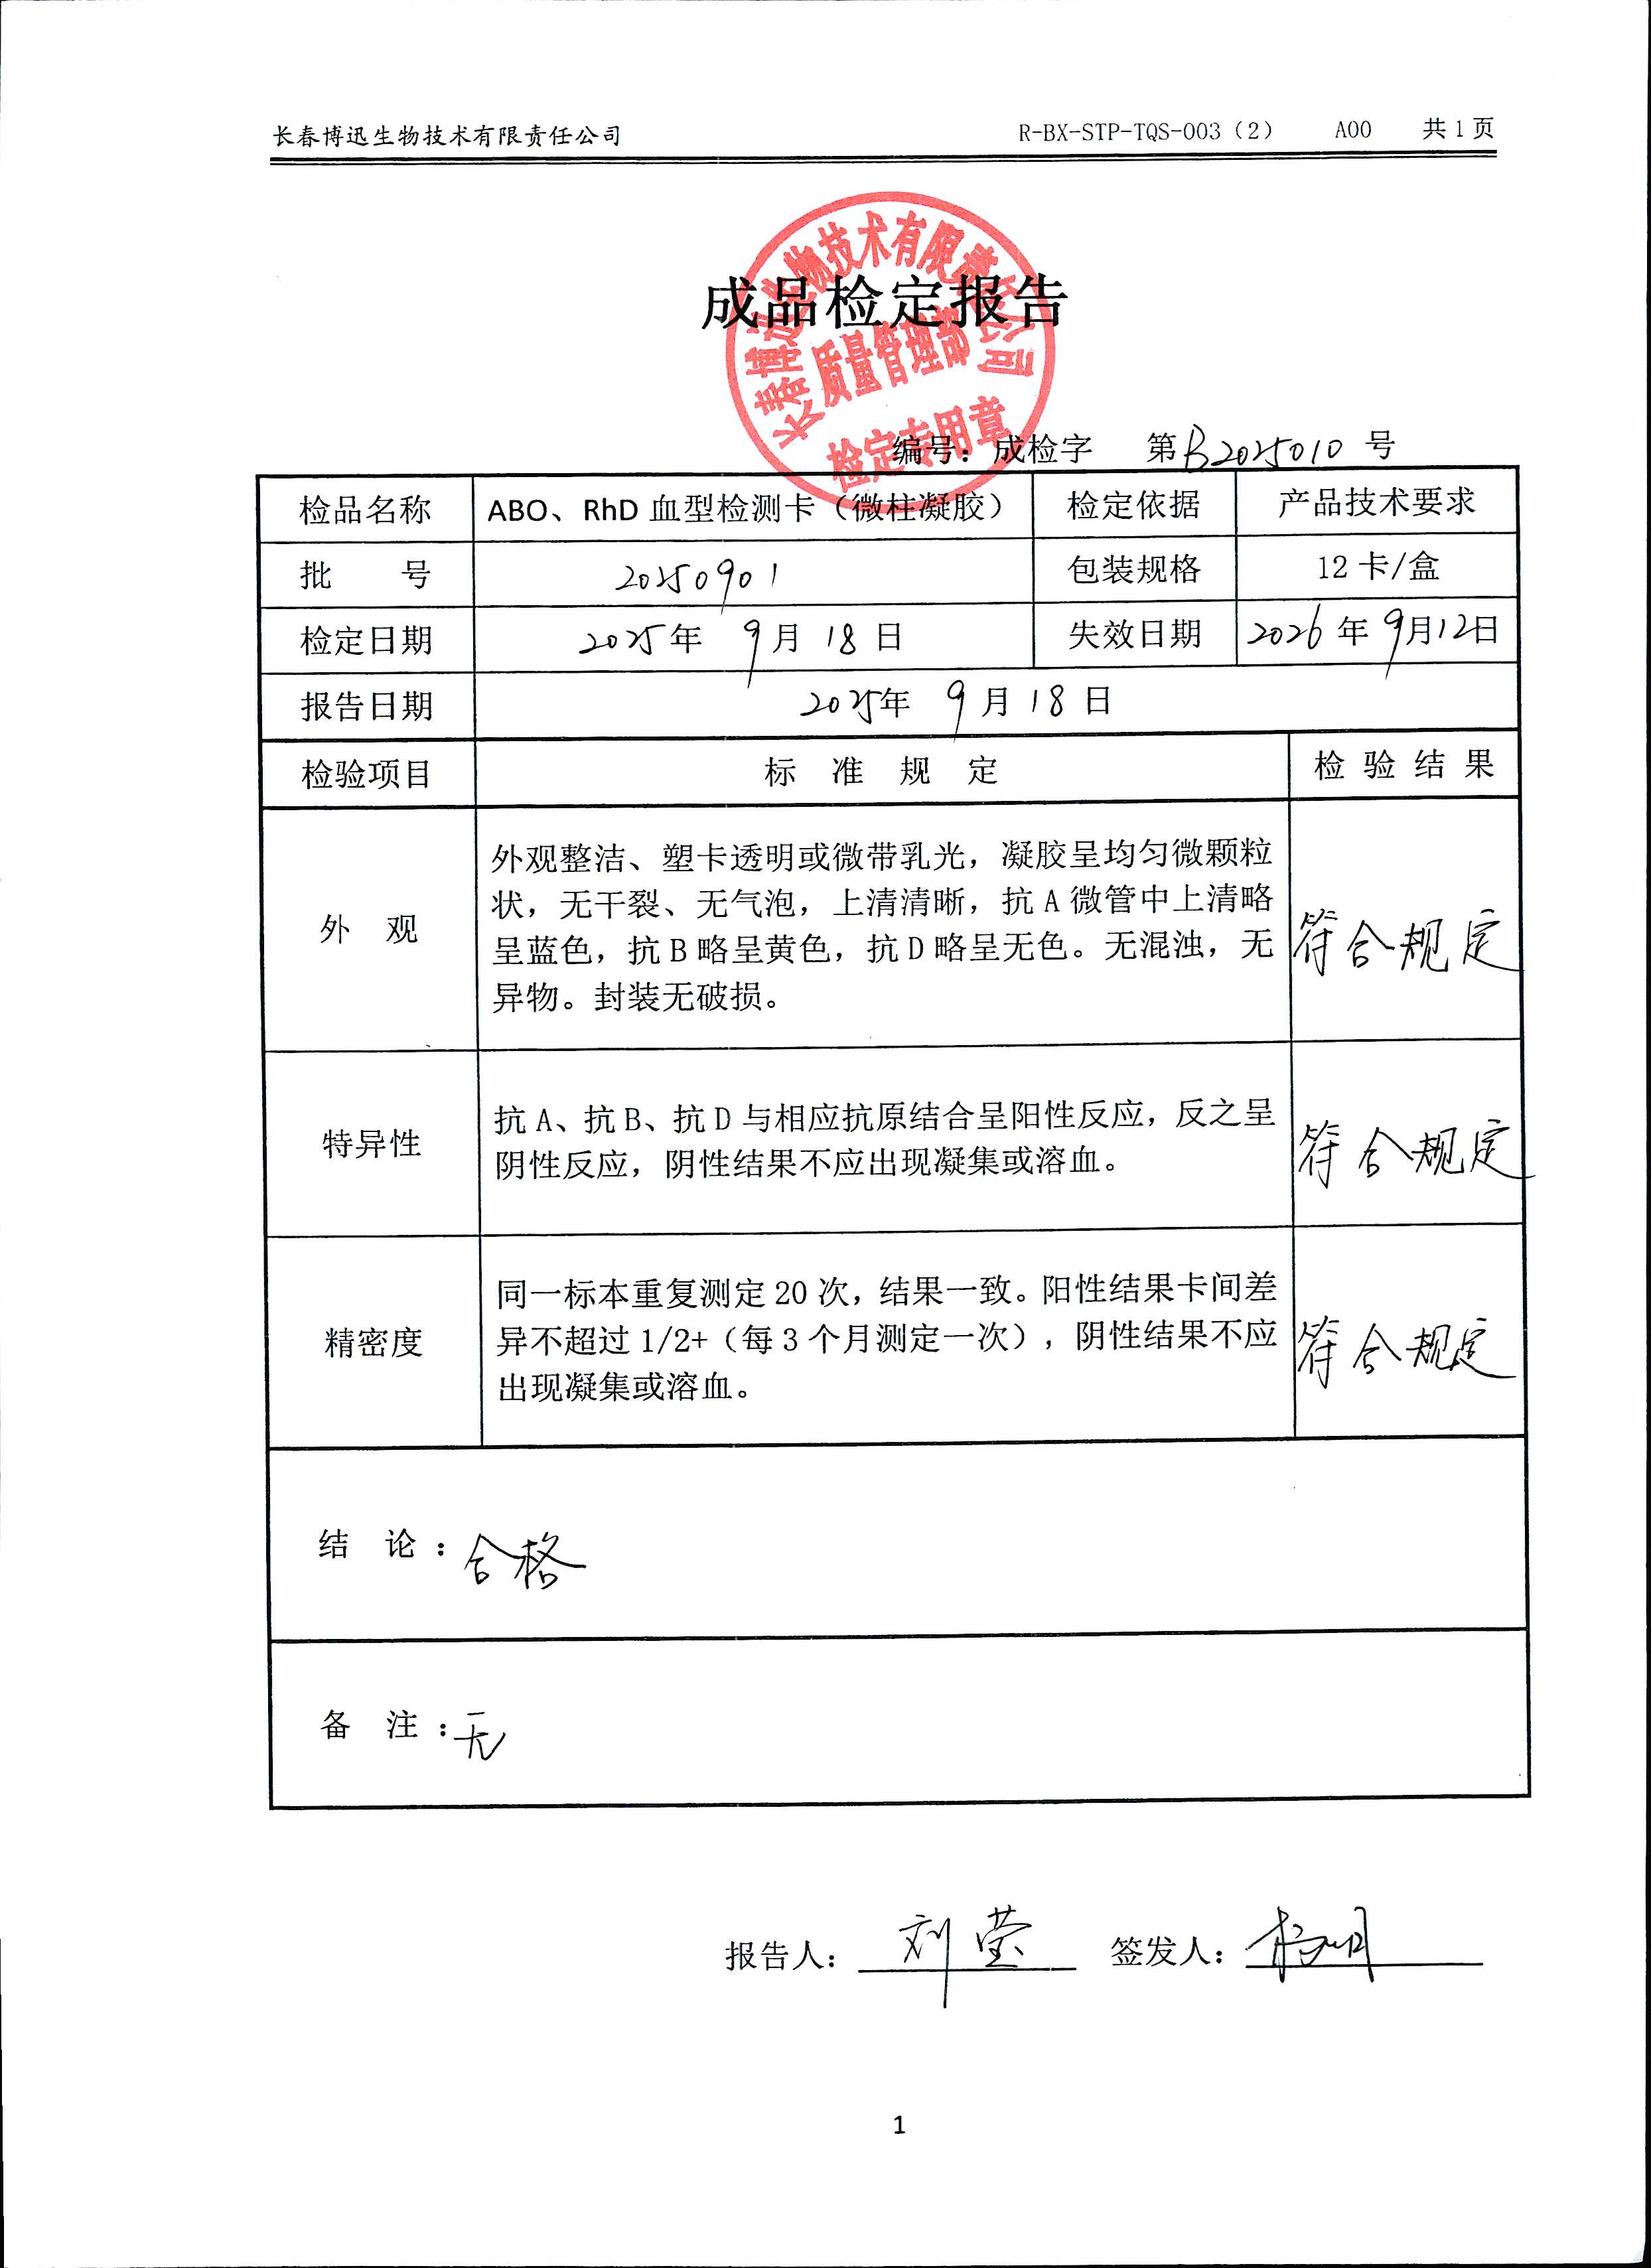 长春博迅生物技术有限责任公司 R-BX-STP-TQS-003（2） A00 共1页
长春博迅生物技术有限责任公司
质量管理部
检定专用章
成品检定报告
编号：成检字 第B2025010号
检品名称 ABO、RhD 血型检测卡（微柱凝胶） 检定依据 产品技术要求
批 号 20250901 包装规格 12 卡/盒
检定日期 2025年 9月 18日 失效日期 2026年9月12日
报告日期 2025年 9月 18日
检验项目 标 准 规 定 检 验 结 果
外 观
外观整洁、塑卡透明或微带乳光，凝胶呈均匀微颗粒
状，无干裂、无气泡，上清清晰，抗 A 微管中上清略
呈蓝色，抗 B 略呈黄色，抗 D 略呈无色。无混浊，无
异物。封装无破损。
符合规定
特异性
抗 A、抗 B、抗 D 与相应抗原结合呈阳性反应，反之呈
阴性反应，阴性结果不应出现凝集或溶血。
符合规定
精密度
同一标本重复测定 20 次，结果一致。阳性结果卡间差
异不超过 1/2+（每 3 个月测定一次），阴性结果不应
出现凝集或溶血。
符合规定
结 论：合格
备 注：无
报告人：刘莹 签发人：
1